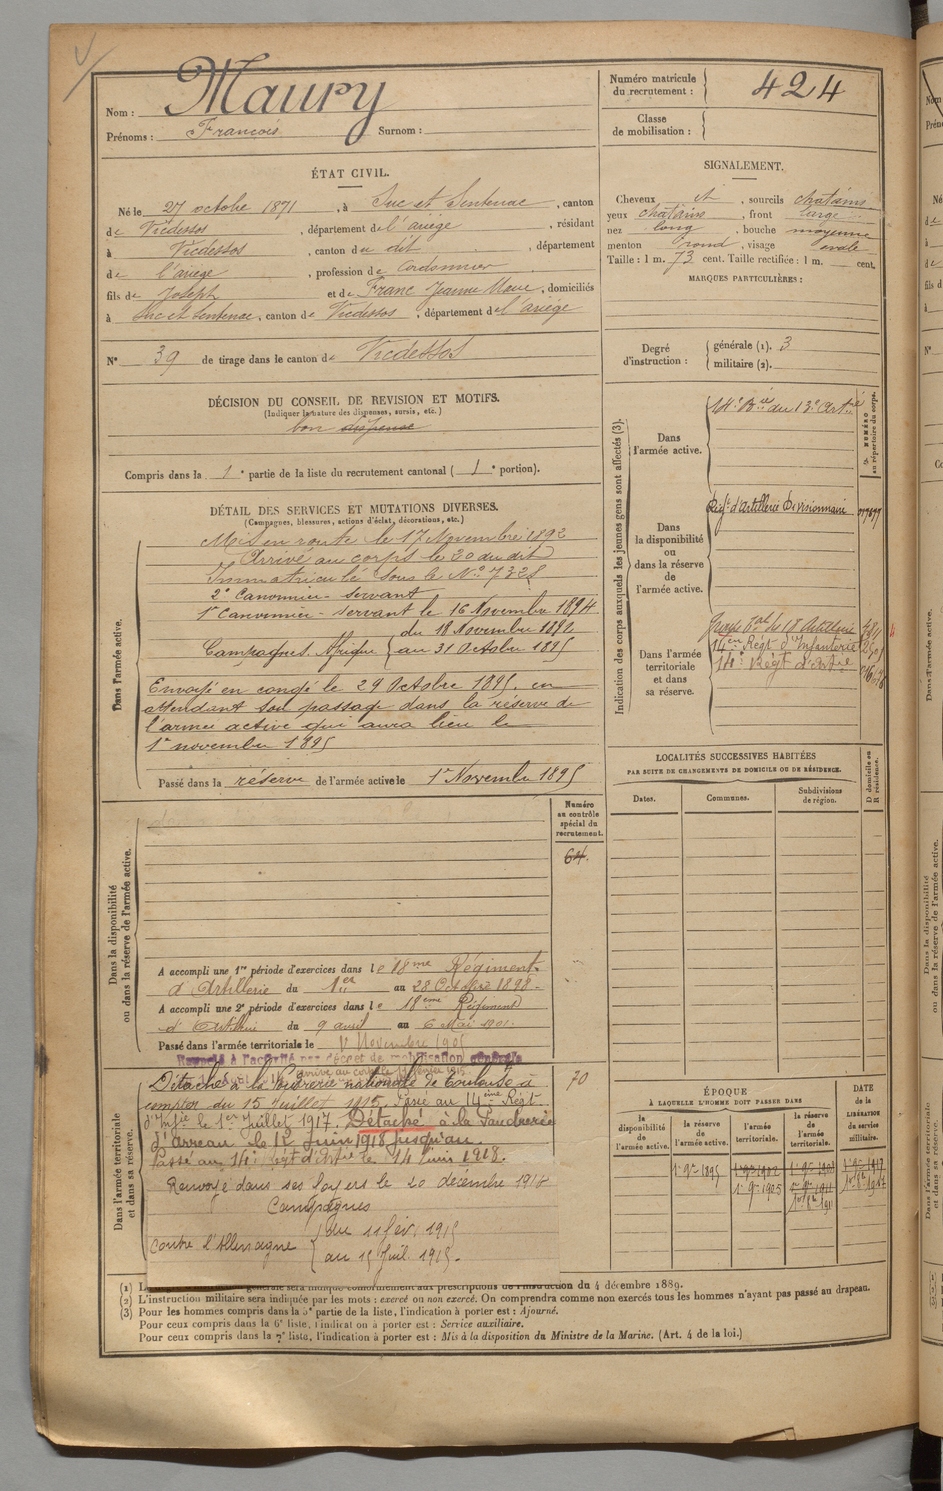 Nom : Maury
Prénoms : François Surnom :
Numéro matricule du recrutement : 424
Classe de mobilisation :
ÉTAT CIVIL.
Né le 27 octobre 1871, à Suc et Sentenac, canton
de Vicdessos, département de l'ariège, résidant
à Vicdessos, canton de du dit, département
de l'ariège, profession de Cordonnier
fils de Joseph et de Franc Jeanne Marie, domiciliés
à Suc et Sentenac, canton de Vicdessos, département de l'ariège
N° 39 de tirage dans le canton de Vicdessos
SIGNALEMENT.
Cheveux et, sourcils chatains
yeux chatains, front large
nez long, bouche moyenne
menton rond, visage ovale
Taille : 1 m. 73 cent. Taille rectifiée : 1 m. cent.
MARQUES PARTICULIÈRES :
Degré d'instruction : générale (1). 3
militaire (2).
DÉCISION DU CONSEIL DE REVISION ET MOTIFS.
(Indiquer la nature des dispenses, sursis, etc.)
bon dispense
Compris dans la 1e partie de la liste du recrutement cantonal (1e portion).
DÉTAIL DES SERVICES ET MUTATIONS DIVERSES.
(Campagnes, blessures, actions d'éclat, décorations, etc.)
Dans l'armée active.
Mis en route le 17 Novembre 1892
Arrivé au corps le 20 du dit
Immatriculé sous le N° 7328
2e Canonnier-servant
1er Canonnier-servant le 16 Novembre 1894
Campagnes Afrique du 18 Novembre 1892
au 31 Octobre 1895
Envoyé en congé le 29 Octobre 1895, en
attendant son passage dans la réserve de
l'armée active qui aura lieu le
1er novembre 1895
Passé dans la réserve de l'armée active le 1er Novembre 1895
Indication des corps auxquels les jeunes gens sont affectés (3).
NUMÉRO au répertoire du corps.
Dans l'armée active.
14e Bie du 13e Artie
Dans la disponibilité ou dans la réserve de l'armée active.
Régt d'Artillerie Divisionnaire
Dans l'armée territoriale et dans sa réserve.
Groupe Tal du 18 Artillerie
14e Régt d'Infanterie
14e Régt d'Artie
LOCALITÉS SUCCESSIVES HABITÉES
PAR SUITE DE CHANGEMENTS DE DOMICILE OU DE RÉSIDENCE.
Dates. Communes. Subdivisions de région. D domicile ou R résidence.
Dans la disponibilité ou dans la réserve de l'armée active.
Numéro au contrôle spécial du recrutement.
64.
A accompli une 1re période d'exercices dans le 18eme Régiment
d'Artillerie du 1er au 28 Octobre 1898.
A accompli une 2e période d'exercices dans le 18eme Régiment
d'Artillerie du 9 avril au 6 Mai 1901.
Passé dans l'armée territoriale le 1r Novembre 1905
Rappelé à l'activité par décret de mobilisation générale
Dans l'armée territoriale et dans sa réserve.
70
Détaché à la Poudrerie nationale de Toulouse à
compter du 15 Juillet 1915. Passé au 14eme Régt
d'Infie le 1er Juillet 1917. Détaché à la Poudrerie
d'Arreau le 12 Juin 1918 jusqu'au.
Passé au 14e Régt d'Artie le 14 Juin 1918.
Renvoyé dans ses foyers le 20 décembre 1918
Campagnes
contre l'Allemagne du 11 fév. 1915
au 15 Juil. 1915.
ÉPOQUE
À LAQUELLE L'HOMME DOIT PASSER DANS
la disponibilité de l'armée active. la réserve de l'armée active. l'armée territoriale. la réserve de l'armée territoriale.
DATE de la LIBÉRATION du service militaire.
1r 9bre 1895 1r 9bre 1902
1r 9bre 1905
(2) L'instruction militaire sera indiquée par les mots : exercé ou non exercé. On comprendra comme non exercés tous les hommes n'ayant pas passé au drapeau.
(3) Pour les hommes compris dans la 5e partie de la liste, l'indication à porter est : Ajourné.
Pour ceux compris dans la 6e liste, l'indication à porter est : Service auxiliaire.
Pour ceux compris dans la 7e liste, l'indication à porter est : Mis à la disposition du Ministre de la Marine. (Art. 4 de la loi.)